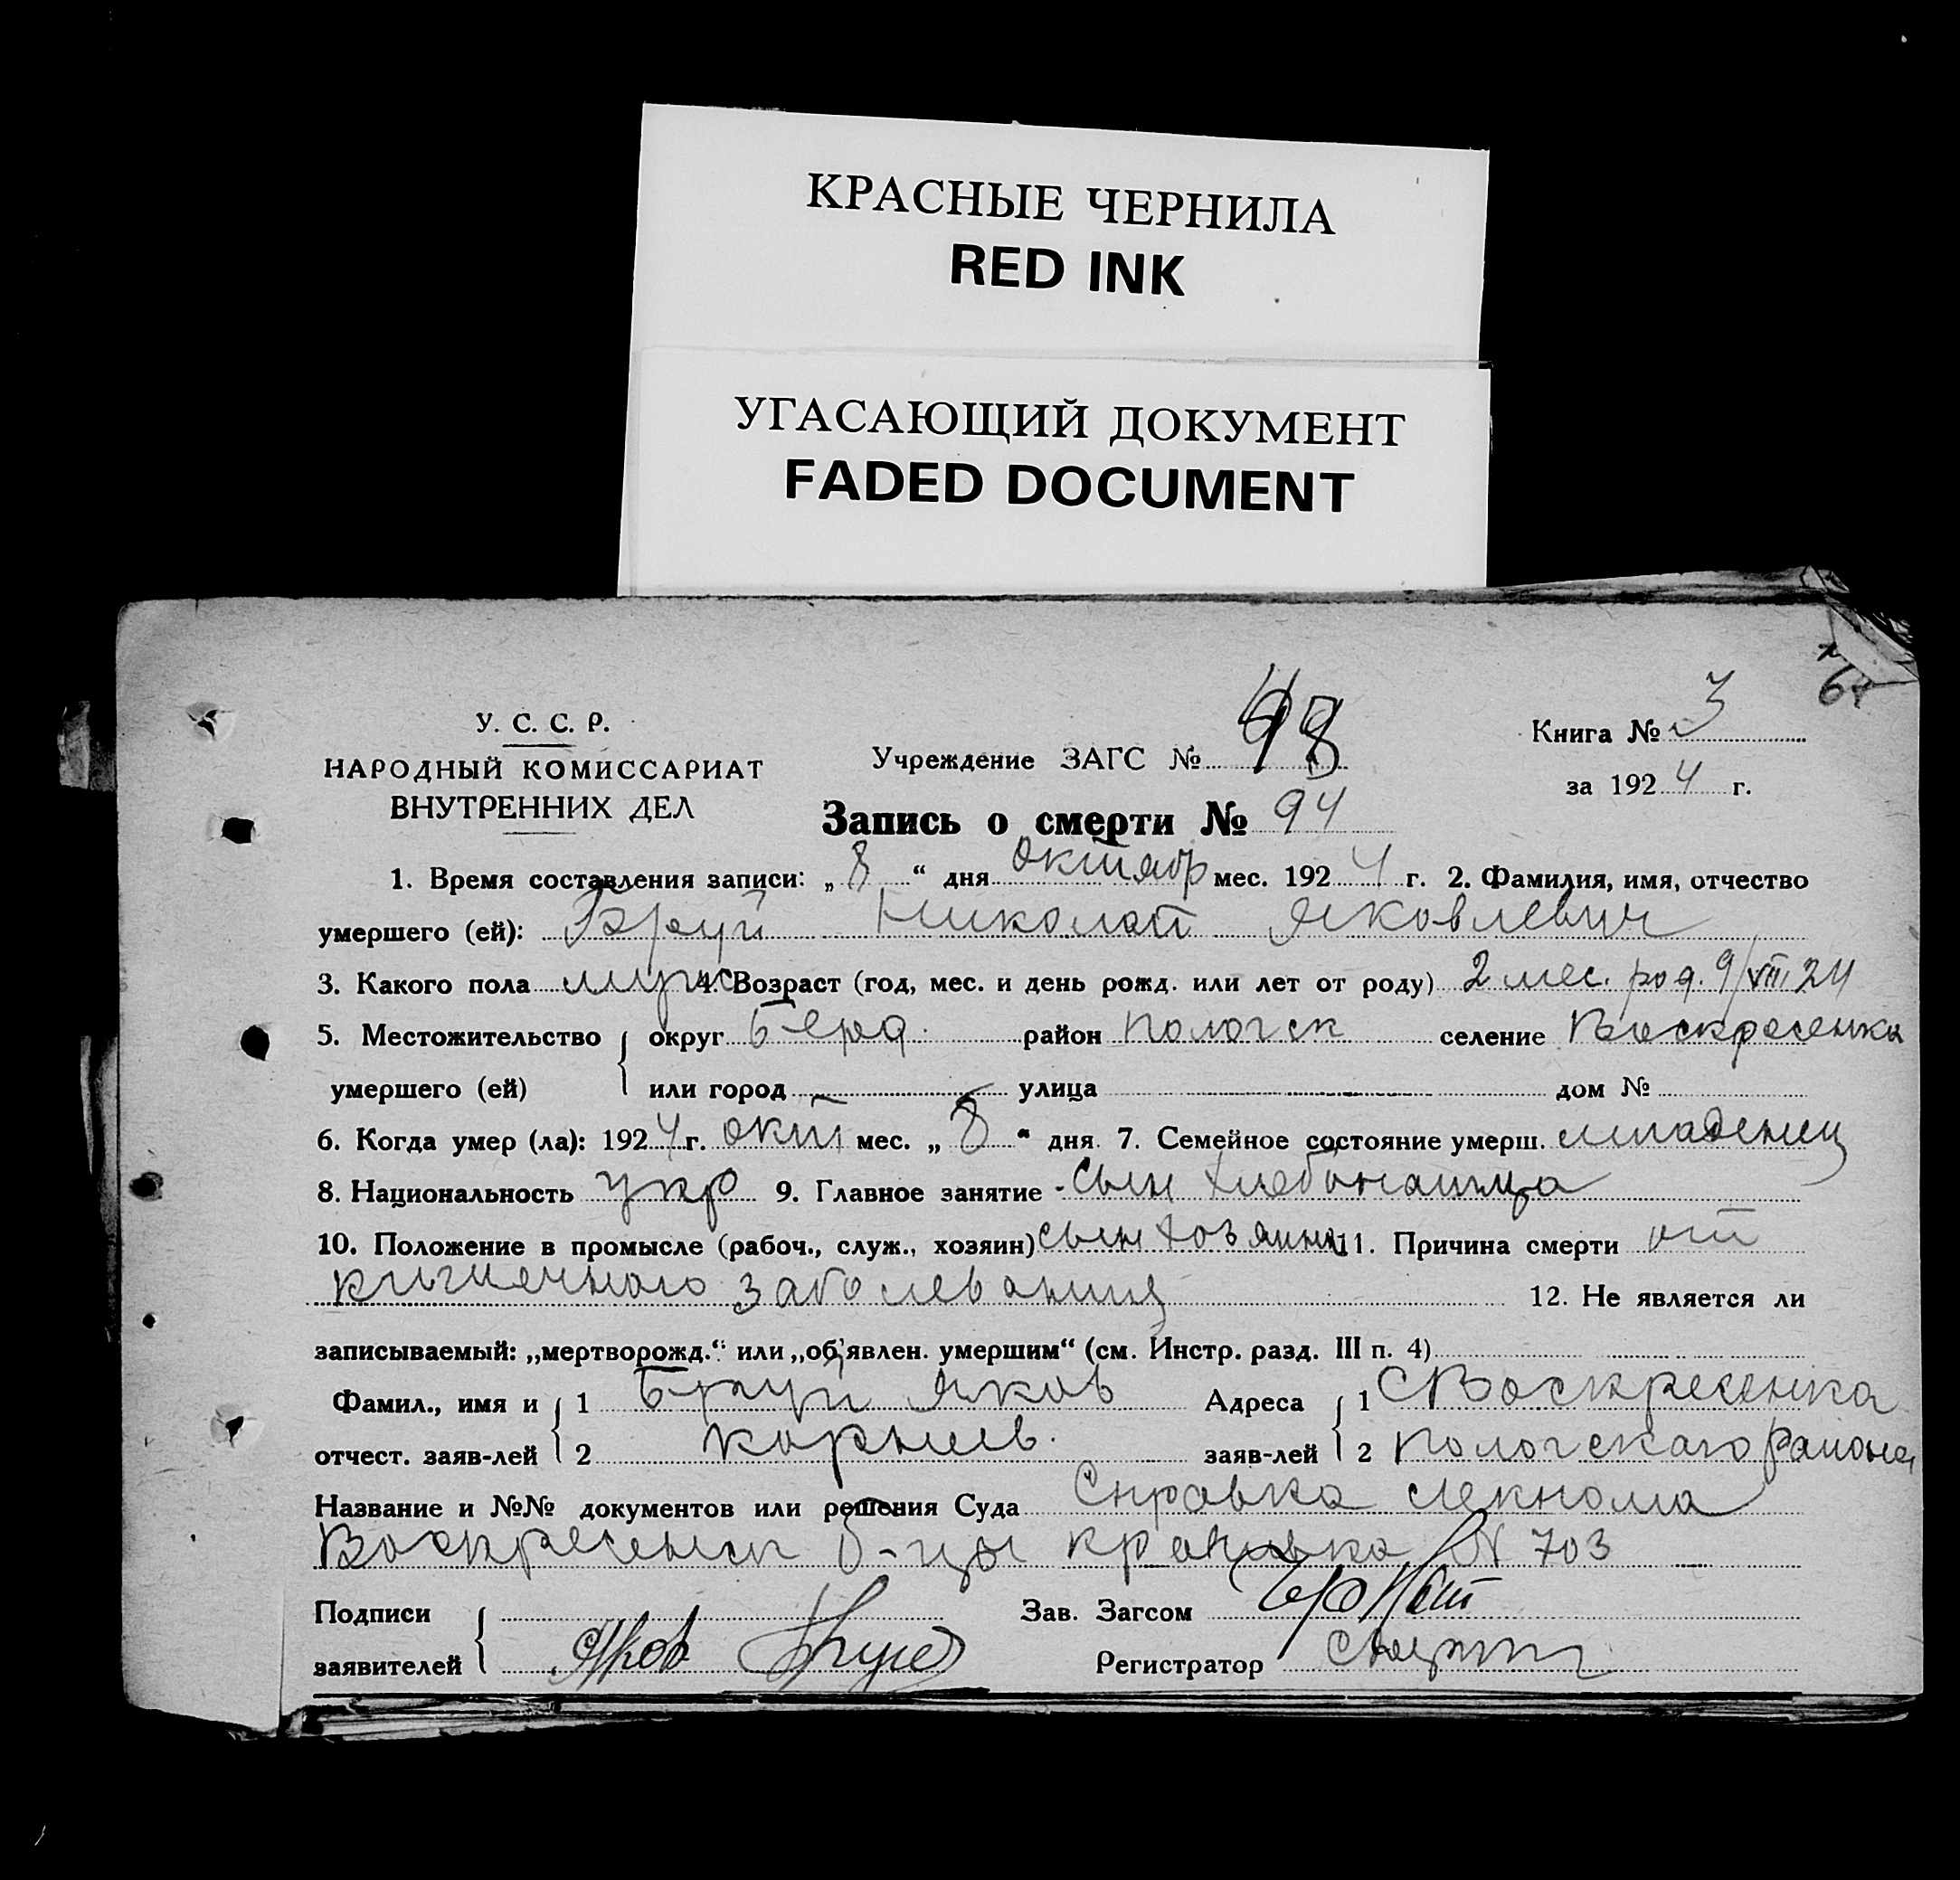 КРАСНЫЕ ЧЕРНИЛА
RED INK
УГАСАЮЩИЙ ДОКУМЕНТ
FADED DOCUMENT
У. С. С. Р.
НАРОДНЫЙ КОМИССАРИАТ
ВНУТРЕННИХ ДЕЛ
Учреждение ЗАГС №
Книга № 3
за 1924 г.
Запись о смерти № 94
1. Время составления записи: „8“ дня октябр мес. 1924 г. 2. Фамилия, имя, отчество
умершего (ей): Бруй Николай Яковлевич
3. Какого пола муж 4. Возраст (год, мес. и день рожд. или лет от роду) 2 мес. род. 9/VIII 24
5. Местожительство округ Берд. район Пологск селение Воскресенка
умершего (ей) или город улица дом №
6. Когда умер (ла): 1924 г. окт мес. „8“ дня. 7. Семейное состояние умерш. младенец
8. Национальность укр 9. Главное занятие - сын хлебопашца
10. Положение в промысле (рабоч., служ., хозяин) сын хозяина 11. Причина смерти от
кишечного заболевания 12. Не является ли
записываемый: „мертворожд.“ или „об'явлен. умершим“ (см. Инстр. разд. III п. 4)
Фамил., имя и 1 Бруй Яков Адреса 1 С Воскресенка
отчест. заяв-лей 2 Корнеев. заяв-лей 2 Пологскаго района
Название и №№ документов или решения Суда Справка лекпома
Воскресенск б-цы № 703
Подписи Зав. Загсом
заявителей Яков Бруй Регистратор